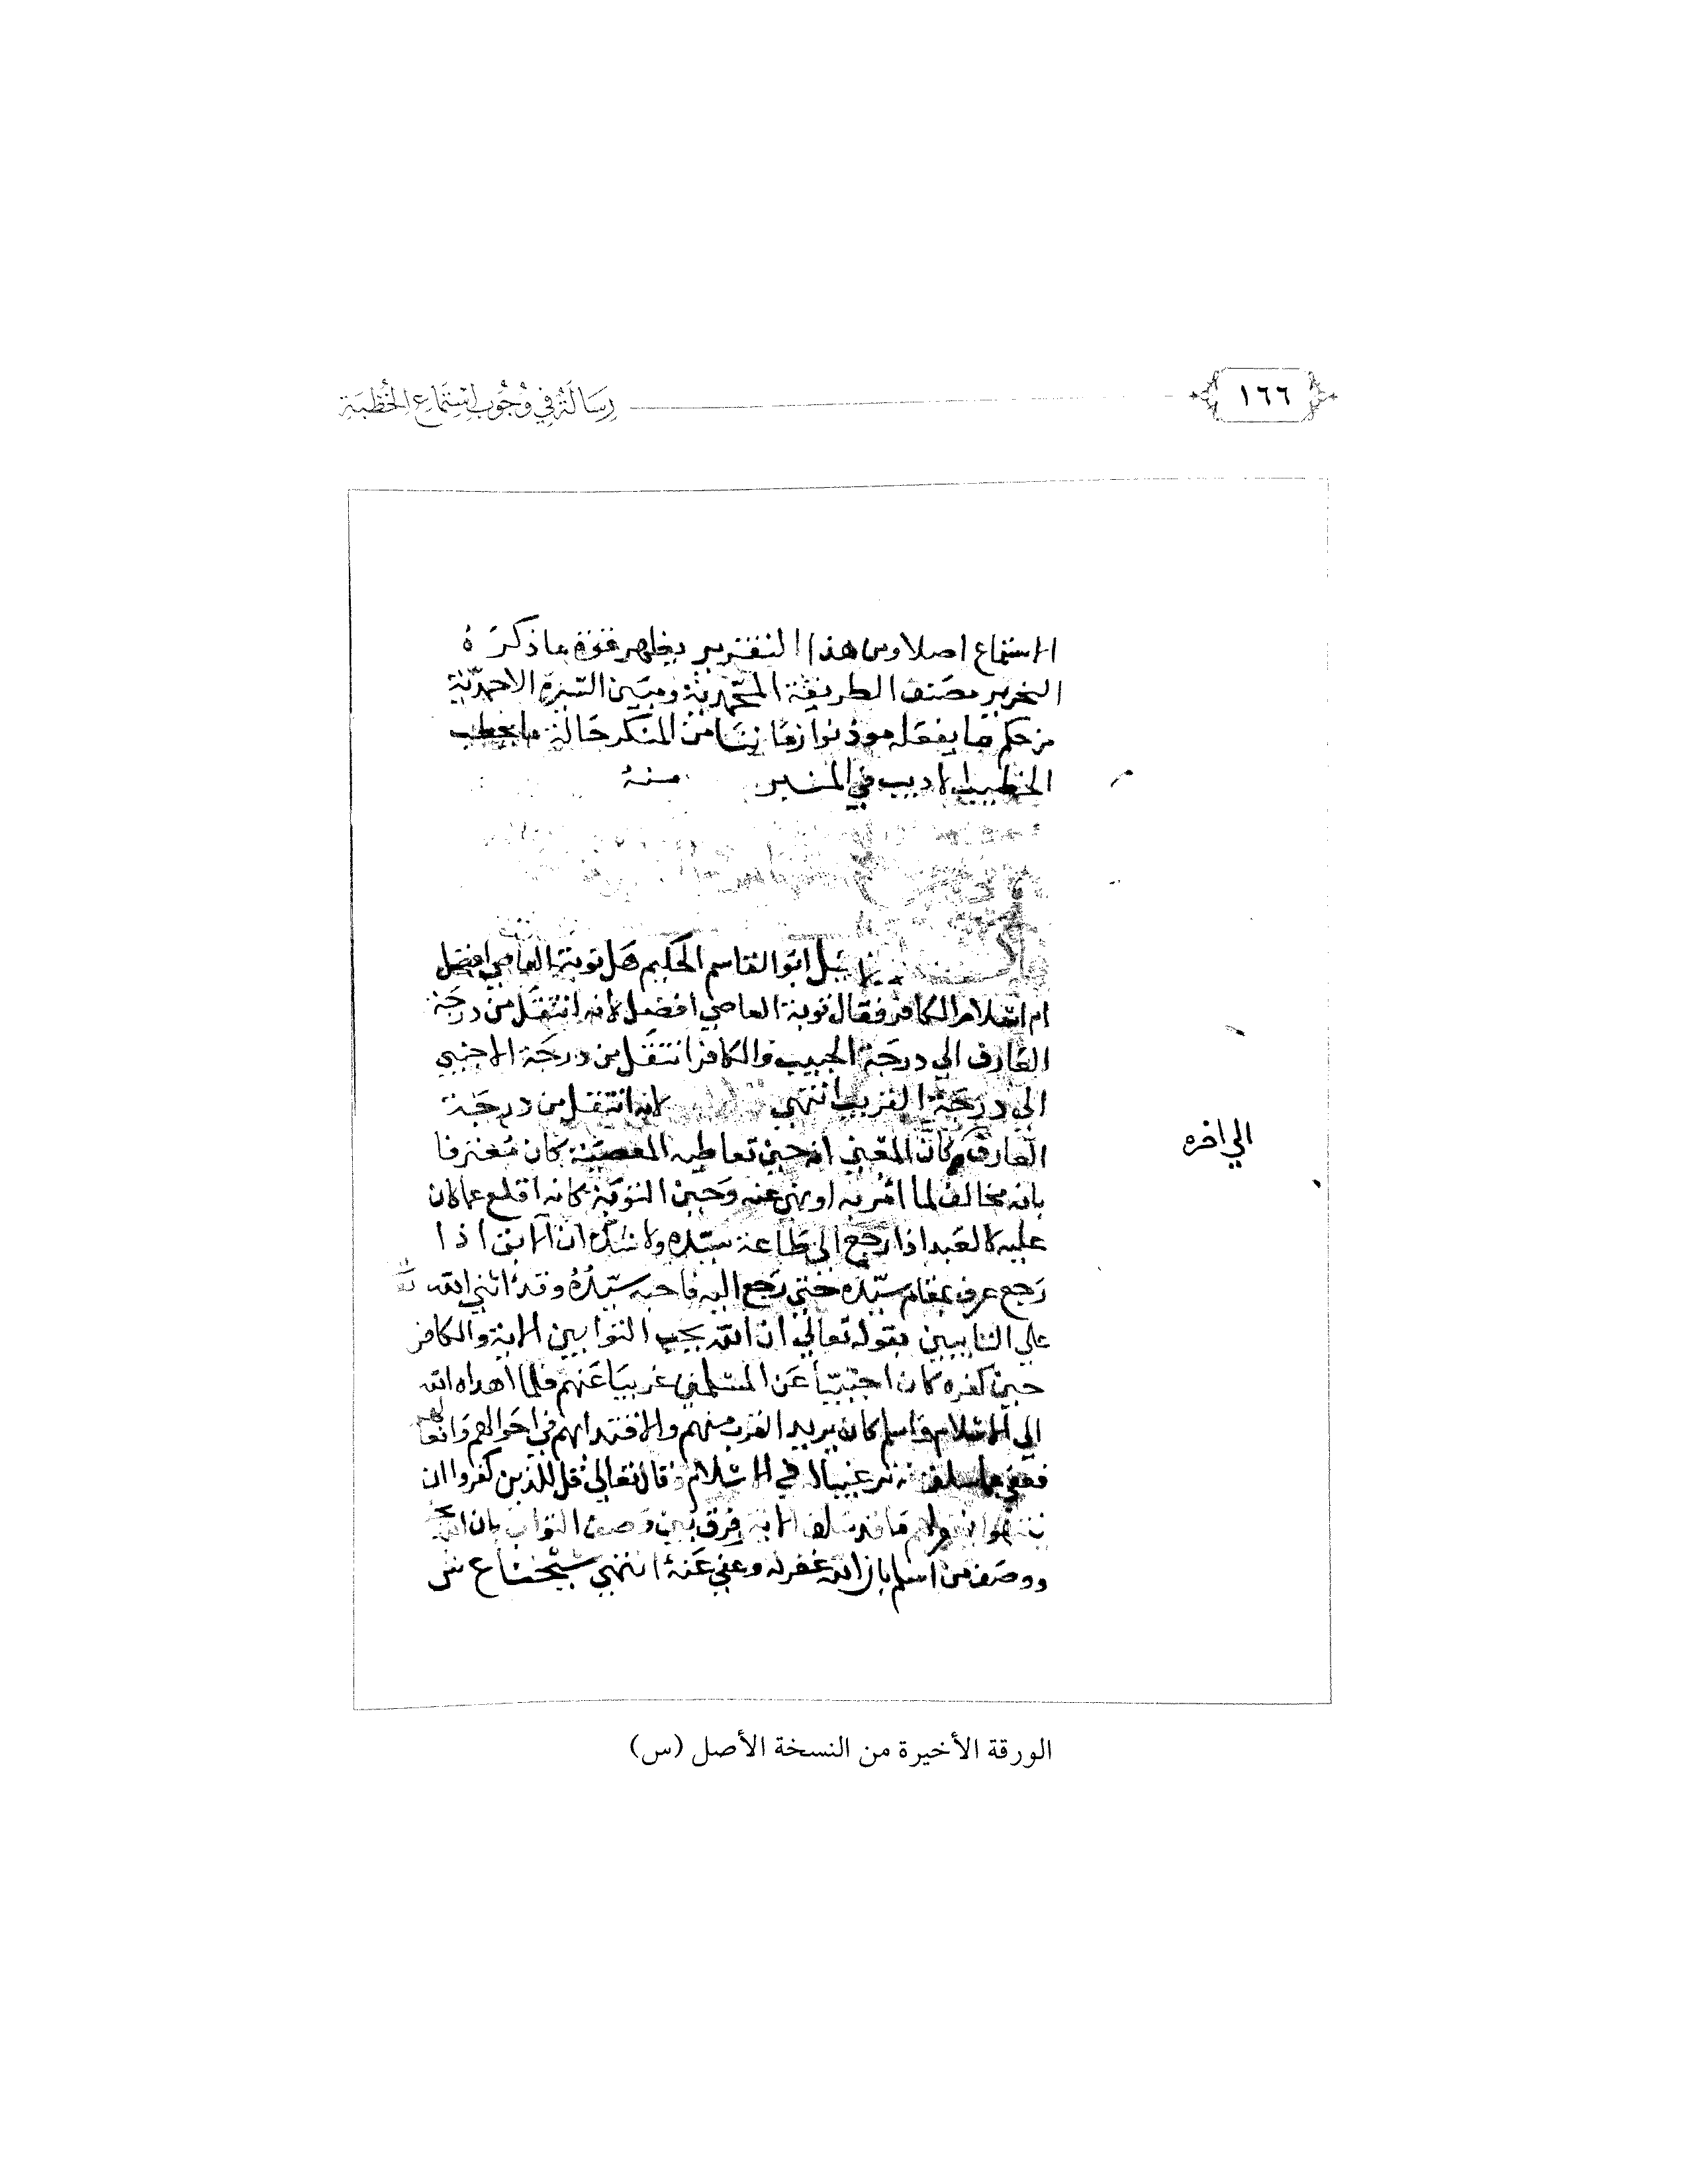 ١٦٦
رِسَالَةٌ فِي وُجُوبِ اسْتِمَاعِ الخُطْبَةِ
الاستماع اصلا ومن هذا التقرير يظهر قوة ما ذكرَهُ
النحرير مصَنف الطريقة المحّمديّة ومبَين السّيرة الاحمدّية
من حكم مَا يفعَله موذنوا زمَاننَا من المنكر حَالة ما يخطب
الخطيب الاديب في المنبر منهُ
ابوُ القاسم الحَكيم هَل توبة العاصي افضل
ام اسلام الكافر فقال توبة العاصي افضل لانه انتقَل من درَجَة
العَارف الي درجَة الحبيب والكافر انتقَل من درجَة الاجنبي
الي درجَة القريب انتهي لانه انتقل من درجَة
العارف كانّ المعني انه حين تعاطيه المعصيَة كان مُعترفا
الي اخره
بانه مخالف لما امُر به او نهي عنه وَحين التوبَة كانه اقلع عما كان
عليه كالعَبد اذا رجَع الي طَاعة سيّده ولا شك ان الابق اذا
رَجع عرف بمقام سيّده حتي رَجع اليه فاحبه سيّدُهُ وقد اثني الله
علي التايبين بقوله تعالي ان الله يحب التوابين الاية والكافر
حين كفره كان اجنبيّا عَن المسلمين غريبَا عَنهم فلما اهداه الله
الي الاسلام واسلم كان يريد القرب منهم والاقتدا بهم في احوالهم وَافعالهم
فعفي عما سلف ترغيبا له في الاسلام وقال تعالي قل للذين كفروا ان
ينتهوا يغفر لهم مَا قد سَلف الاية فرق بَين وَصف التواب بان الله
ووصَف من اسلم بان الله غفر له وعفي عَنهُ انتهي
الورقة الأخيرة من النسخة الأصل (س)